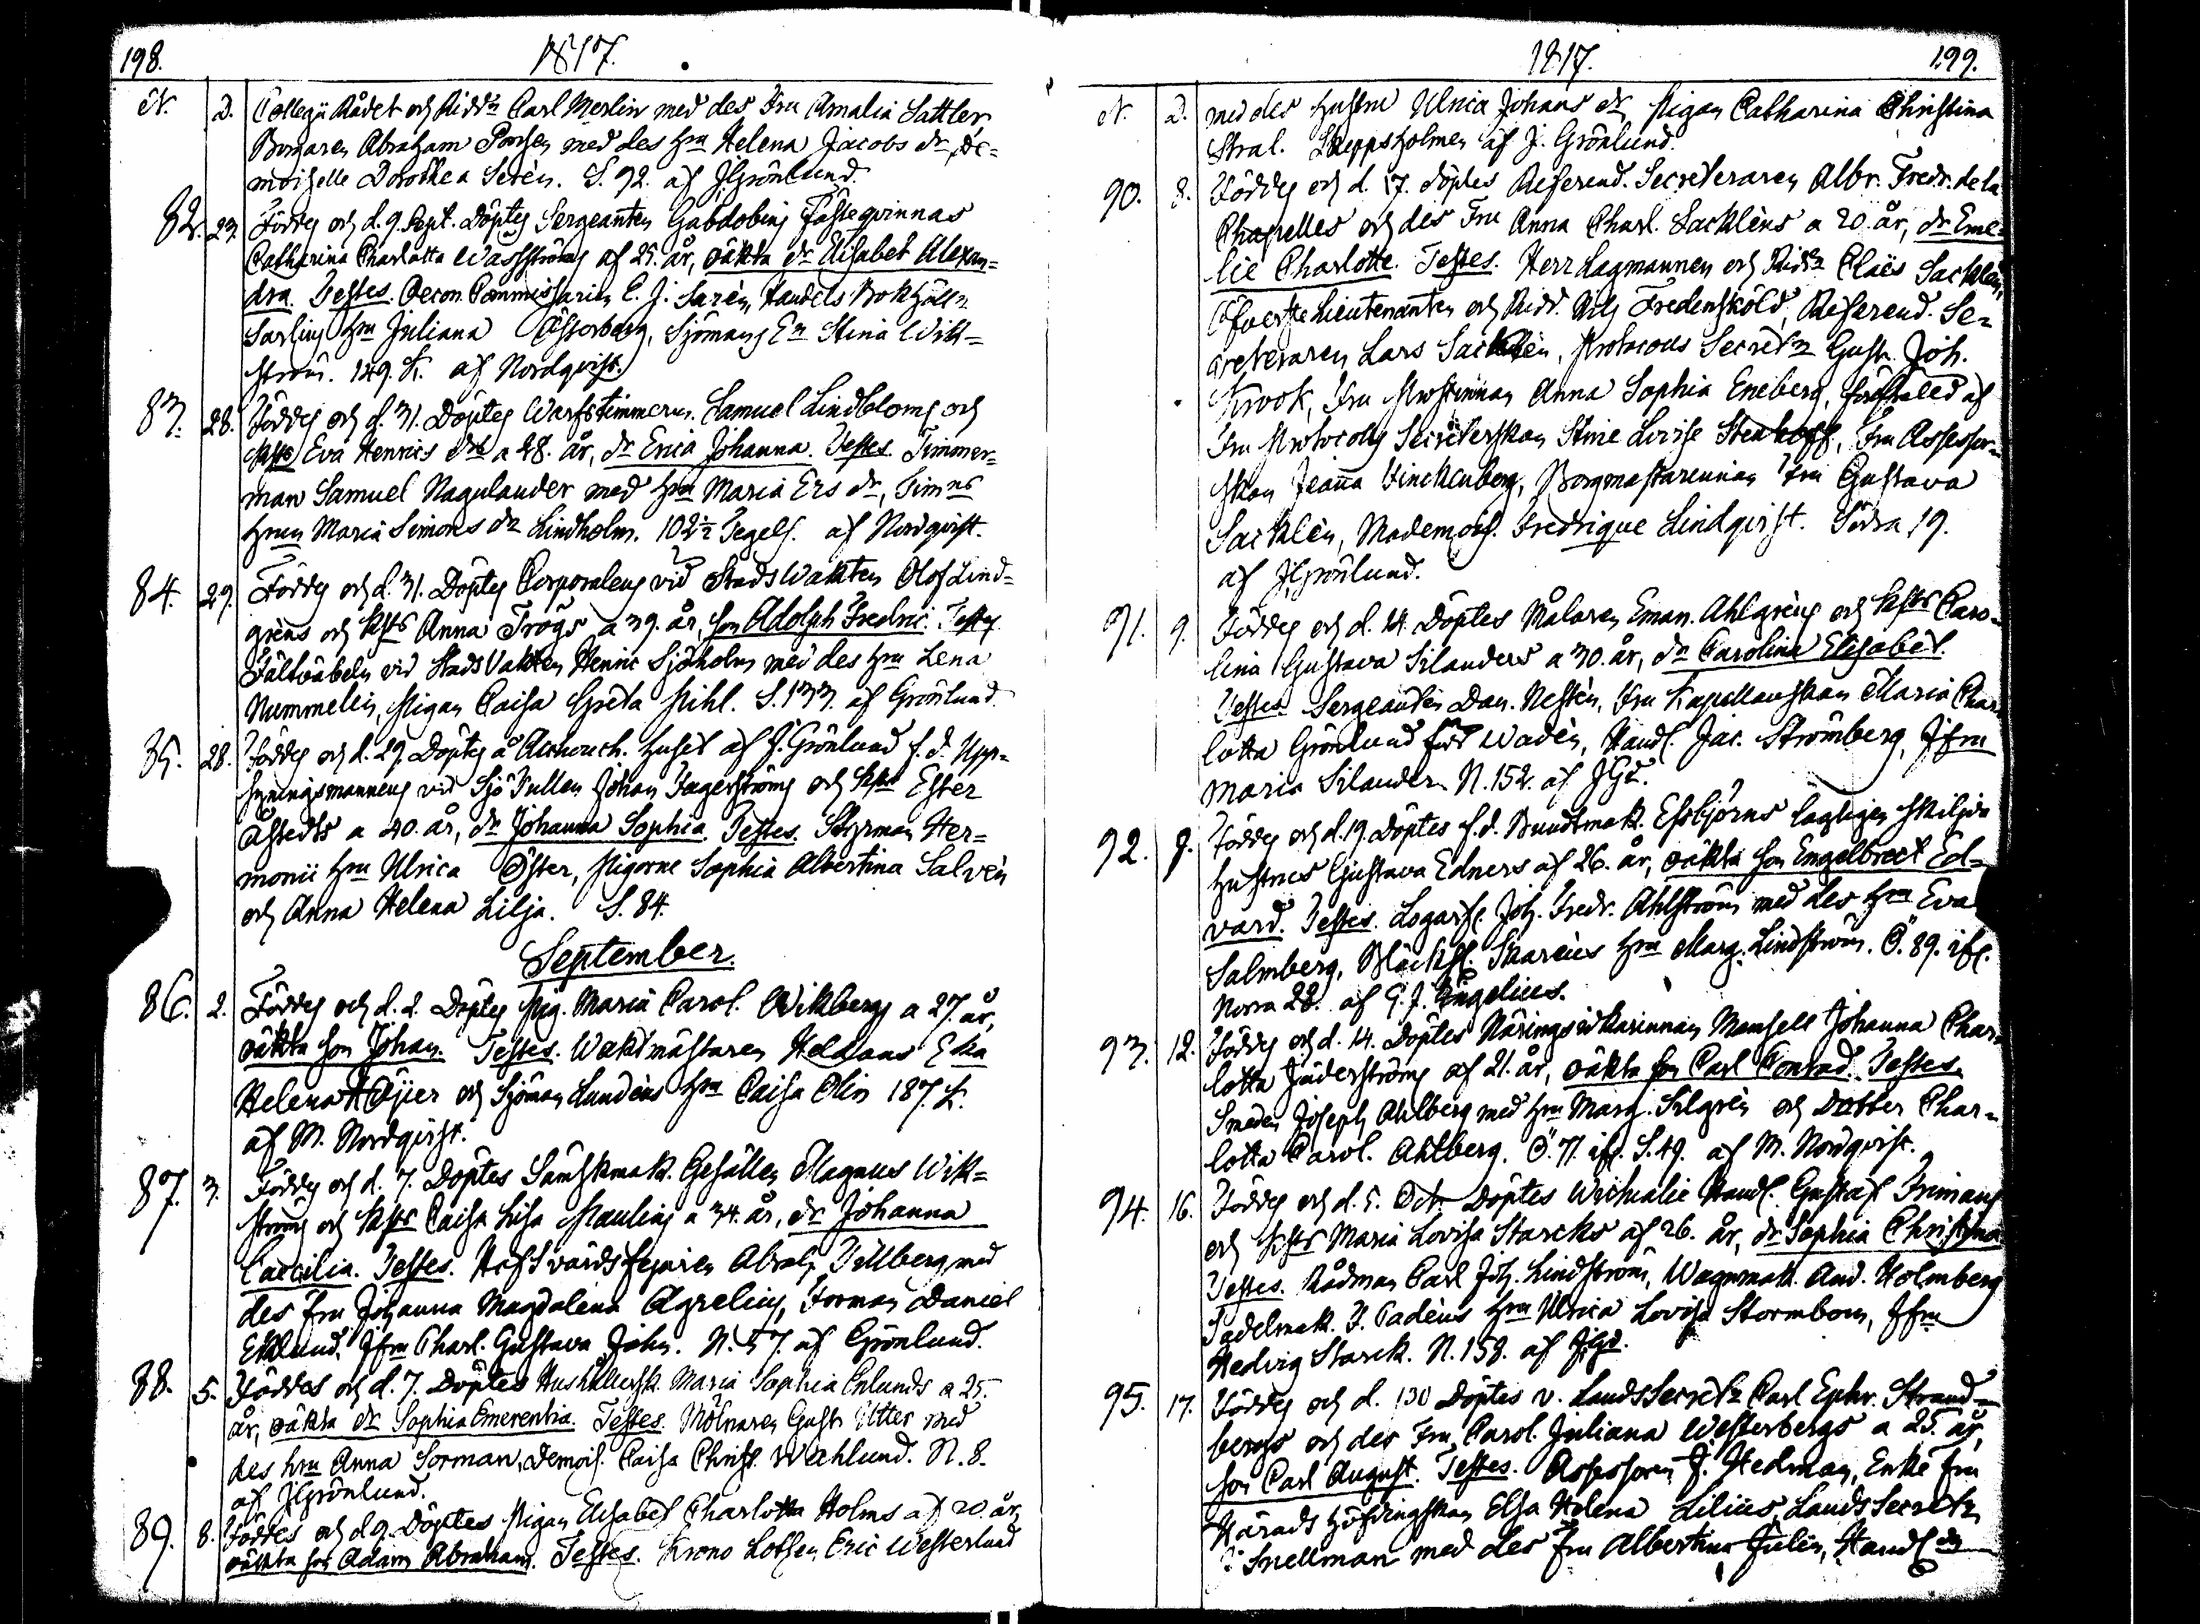 198. 1817.
N. D. Collegii Rådet och Ridd:n Carl Merlin med des Fru Amalia Sattler
Abraham med des H:ru Helena Jacobs d:r, De=
moiselle Dorothea Serèn. S. 92. af J Grönlund.
82. 23. Föddes och d. 9. Sept. Döptes Sergeanten Fästeqvinnas
Catharina Charlotta af 25. år, oäkta d:r Elisabet Alexan=
dra. Testes. Oecon. Commissarien C. J. Handels Bokhåll:n
H:ru Juliana Österberg, Sjömans E:n Stina Wik=
ström. 149. K. af Nordqvist.
83. 28. Föddes och d. 31. Döptes Warfstimmerm. Samuel Lindbloms och
Eva Henrics d:rs a 28. år, d:r Erica Johanna. Testes. Timmer=
man Samuel Nagulander med H:ru Maria Ers d:r, Tim:ns
H:run Maria Simons d:r Lindholm. 102½ Tegels. af Nordqvist.
84. 29. Föddes och d. 31. Döptes Corporalens vid Stads Wakten Olof Lind=
grèns och Anna Trögs a 39. år, son Adolph Fredric. Testes
Fältväbeln vid Stads Vakten Henric Sjöholm med des H:ru Lena
Nummelin, Pigan Caisa Greta Pihl. S. 133. af Grönlund.
35. 28. Föddes och d. 29. Döptes å Accouch. Huset af J. Grönlund f. d. Upp=
syningsmannens vid Sjö Tullen Johan Fagerströms och Ester
a 40. år, d:r Johanna Sophia. Testes. Styrman Her=
monii H:ru Ulrica Öster, Pigorne Sophia Albertina Salvèn
och Anna Helena Lilja. S. 84.
September.
86. 2. Föddes och d. 2. Döptes Pig. Maria Carol. Wikbergs a 27. år,
oäkta son Johan. Testes. Waktmästaren Enka
Helena Höijer och Sjöman Lundèns H:ru Caisa Olin 187. K.
af M. Nordqvist.
87. 3. Föddes och d. 7. Döptes Sämskmak. Gesällen Magnus Wik=
ströms och Caisa Lisa Paulins a 34. år, d:r Johanna
Caecilia. Testes. Hofsvärdsfejaren Abrah. Tillberg med
des Fru Johanna Magdalena Agrelius, Forman Daniel
Eklund, Jfru Charl. Gustava John. N. 57. af Grönlund.
88. 5. Föddes och d. 7. Döptes Hushållersk. Maria Sophia Enlunds a 25.
år, oäkta d:r Sophia Emerentia. Testes. Mölnaren Gust. Utter med
des H:ru Anna Sorman, Demois. Caisa Christ. Wahlund. N. 8.
af J Grönlund.
89. 8. Föddes och d. 9. Döptes Pigan Elisabet Charlotta Holms af 20 år,
oäkta son Adam Abraham. Testes. Krono Lotsen Eric Westerlund
1817. 199.
N. D. med des Hustru Ulrica Johans d:r, Pigan Catharina Christina
Stral. Skeppsholmen af J. Grönlund.
90. 8. Föddes och d. 17. döptes Referend. Secreteraren Albr. Fredr. de la
Chapelles och des Fru Anna Charl. Sacklèns a 20. år, d:r Eme=
lie Charlotte. Testes. Herr Lagmannen och Ridd:n Claës Sacklèn,
Öfverste Lieutenanten och Ridd. Nils Fredensköld, Referend. Se=
creteraren Lars Sacklèn, Protocolls Secret:n Gust. Joh.
Krook, Fru Prostinnan Anna Sophia Eneberg, af
Fru Protocolls Secreterskan Stine Lovise Fru Assessor=
skan Jeanna Finckenberg, Borgmästarinnan Fru Gustava
Sacklèn, Mademois. Fredrique Lindqvist. Södra 19.
af J Grönlund.
91. 9. Föddes och d. 14. Döptes Målaren Eman. Ahlgrèns och Caro=
lina Gustava Silanders a 30. år, d:r Carolina Elisabet.
Testes. Sergeanten Dan. Nestèn, Fru Kapellanskan Maria Char=
lotta Grönlund född Wadèn, Handl. Jac. Strömberg, Jfru
Maria Silander N. 152. af JGd.
92. 9. Föddes och d. 19. Döptes f. d. Buntmak. Esbjörns lagligen skilgda
Hustrus Gustava Edners af 26. år, oäkta son Engelbrect Ed=
vard. Testes. Joh. Fredr. Ahlström med des H:ru Eva
Salmberg, H:ru Marg. Lindström. Ö. 89. ifl.
Norra 28. af G. J.
93. 12. Föddes och d. 14. Döptes Näringsidkarinnan Mamsell Johanna Char=
lotta Jäderströms af 21. år, oäkta son Carl Conrad. Testes.
Smeden Joseph Ahlberg med H:ru Marg. Silgrèn och Dotter Char=
lotta Carol. Ahlberg. Ö. 77. ifl. S. 49. af M. Nordqvist.
94. 16. Föddes och d. 5. Oct. Döptes Victualie Handl. Gustaf Frimans
och Maria Lovisa Starcks af 26. år, d:r Sophia Christina
Testes. Rådman Carl Joh. Lindström, Wagnmak. And. Holmberg
Sadelmak. H:ru Ulrica Lovisa Stormbom, Jfru
Hedvig Starck. N. 158. af JGd.
95. 17. Föddes och d. 30 Döptes v. Lands Secret:n Carl Ephr. Strand=
bergs och des Fru Carol. Juliana Westerbergs a 25. år,
son Carl August. Testes. Assessorn J. Hedman, Enke Fru
Härads Höfdingskan Elsa Helena Lilius, Lands Secret:n
Snellman med des Fru Albertina Julin, Handl